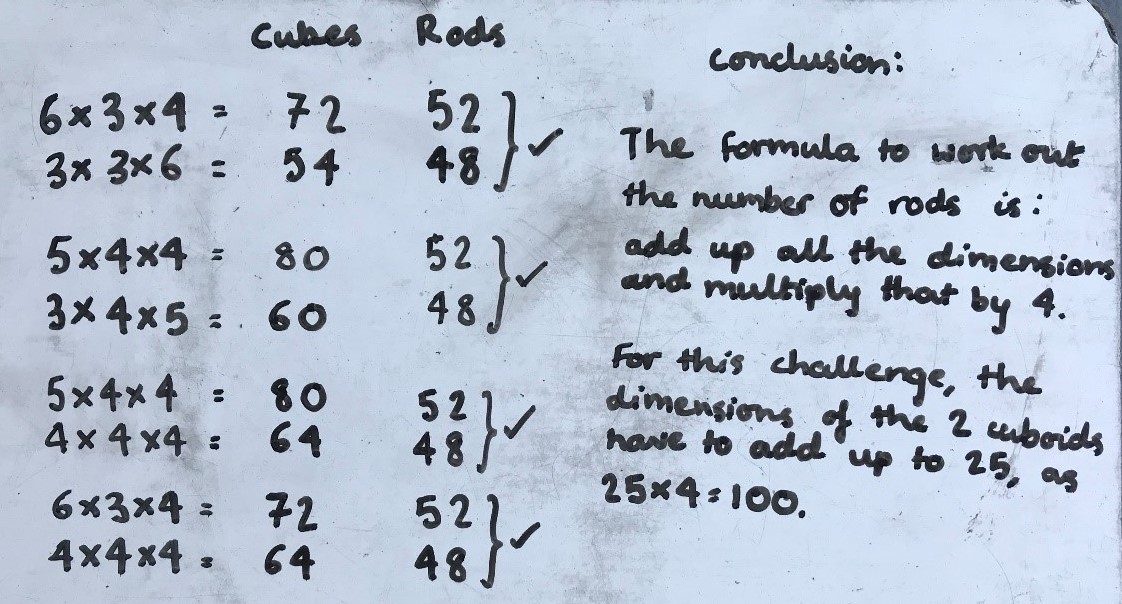 Cubes Rods
6 x 3 x 4 = 72 52 } ✓
3 x 3 x 6 = 54 48
5 x 4 x 4 = 80 52 } ✓
3 x 4 x 5 = 60 48
5 x 4 x 4 = 80 52 } ✓
4 x 4 x 4 = 64 48
6 x 3 x 4 = 72 52 } ✓
4 x 4 x 4 = 64 48
Conclusion:
The formula to work out
the number of rods is:
add up all the dimensions
and multiply that by 4.
For this challenge, the
dimensions of the 2 cuboids
have to add up to 25, as
25 x 4 = 100.